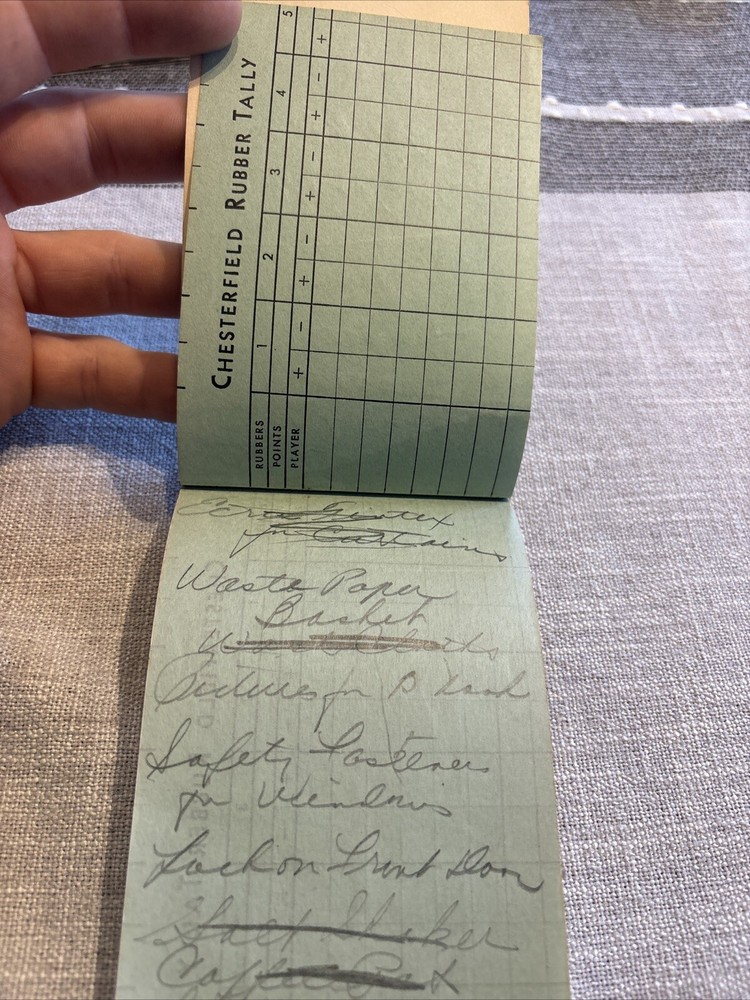 CHESTERFIELD RUBBER TALLY
RUBBERS 1 2 3 4 5
POINTS
PLAYER + - + - + - + - +
for Curtains
Waste Paper
Basket
Wash Cloths
Pictures for B
Safety Fasteners
for Windows
Lock on Front Door
Salt Shaker
Coffee Pot